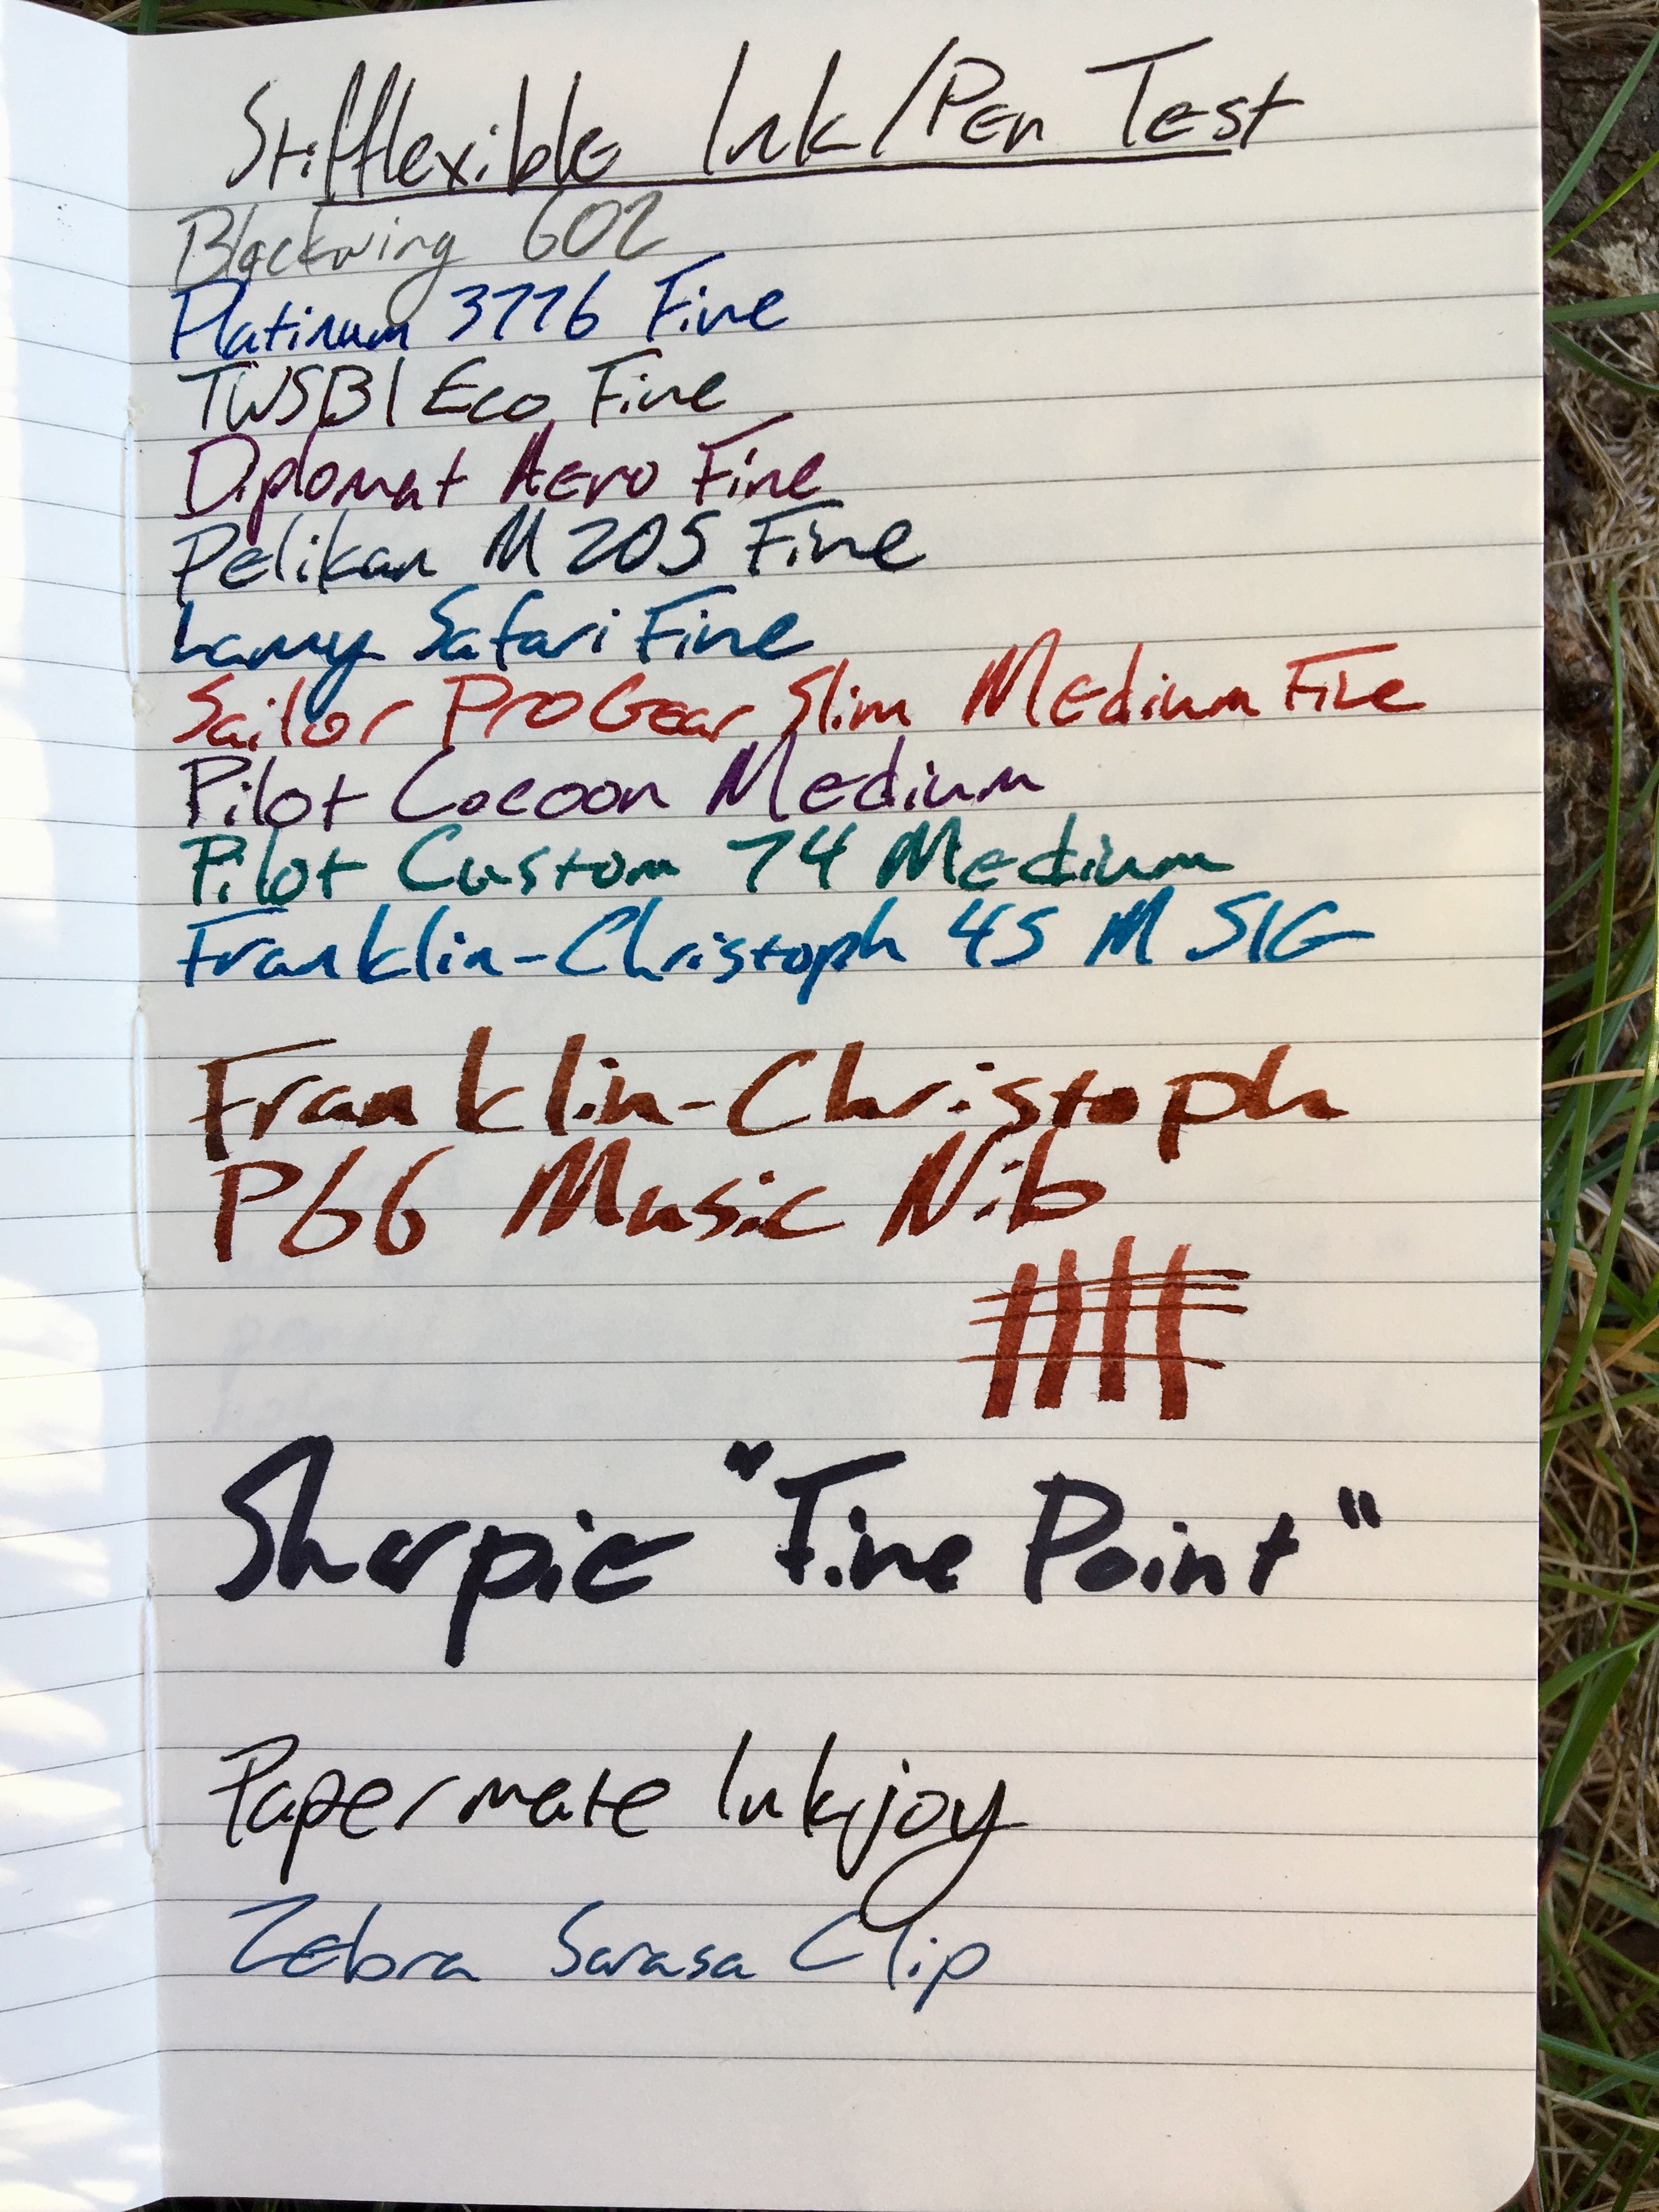 Stifflexible Ink/Pen Test
Blackwing 602
Platinum 3776 Fine
TWSBI Eco Fine
Diplomat Aero Fine
Pelikan M205 Fine
Lamy Safari Fine
Sailor ProGear Slim Medium Fine
Pilot Cocoon Medium
Pilot Custom 74 Medium
Franklin-Christoph 45 M SIG
Franklin-Christoph
P66 Music Nib
Sharpie "Fine Point"
Papermate Inkjoy
Zebra Sarasa Clip